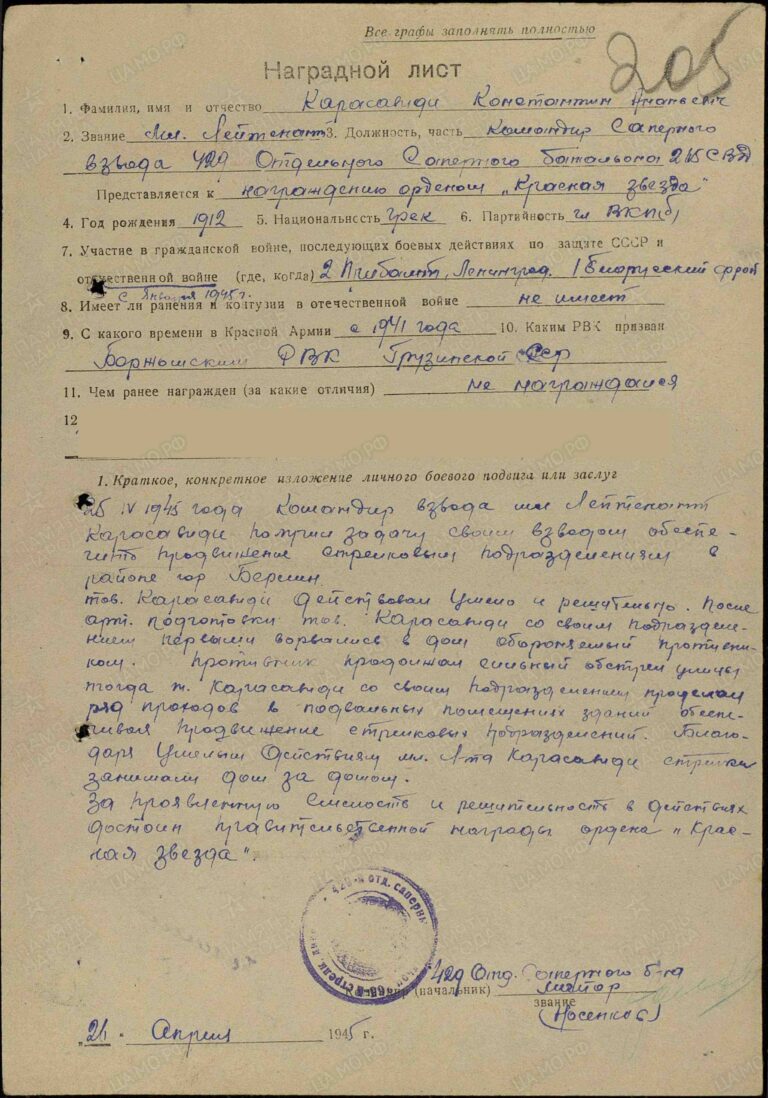 Все графы заполнять полностью
205
Наградной лист
1. Фамилия, имя и отчество Карасавиди Константин Ананьевич
2. Звание Мл. Лейтенант 3. Должность, часть Командир Саперного
взвода 429 Отдельного Саперного батальона
Представляется к награждению орденом „Красная звезда"
4. Год рождения 1912 5. Национальность грек 6. Партийность чл ВКП(б)
7. Участие в гражданской войне, последующих боевых действиях по защите СССР и
отечественной войне (где, когда) 2 Прибалт, Ленинград. 1 Белорусский фронт
с Января 1945 г.
8. Имеет ли ранения и контузии в отечественной войне не имеет
9. С какого времени в Красной Армии с 1941 года 10. Каким РВК призван
Боржомским РВК Грузинской ССР
11. Чем ранее награжден (за какие отличия) не награждался
12
1. Краткое, конкретное изложение личного боевого подвига или заслуг
25 IV 1945 года Командир взвода мл Лейтенант
Карасавиди получил задачу своим взводом обеспе-
чить продвижение стрелковым подразделениям в
районе гор Берлин.
тов. Карасавиди действовал умело и решительно. После
арт. подготовки тов. Карасавиди со своим подразделе-
нием первыми ворвались в дом обороняемый противни-
ком. Противник продолжал сильный обстрел улицы
тогда т. Карасавиди со своим подразделением проделал
ряд проходов в подвальных помещениях зданий обеспе-
чивая продвижение стрелковых подразделений. Благо-
даря умелым действиям мл. л-та Карасавиди стрелки
занимали дом за домом.
За проявленную смелость и решительность в действиях
достоин правительственной награды ордена „Крас-
ная звезда".
429-й отд. саперный
429 Отд. Саперного б-на
(начальник) майор
звание
(Носенков)
26. Апреля 1945 г.